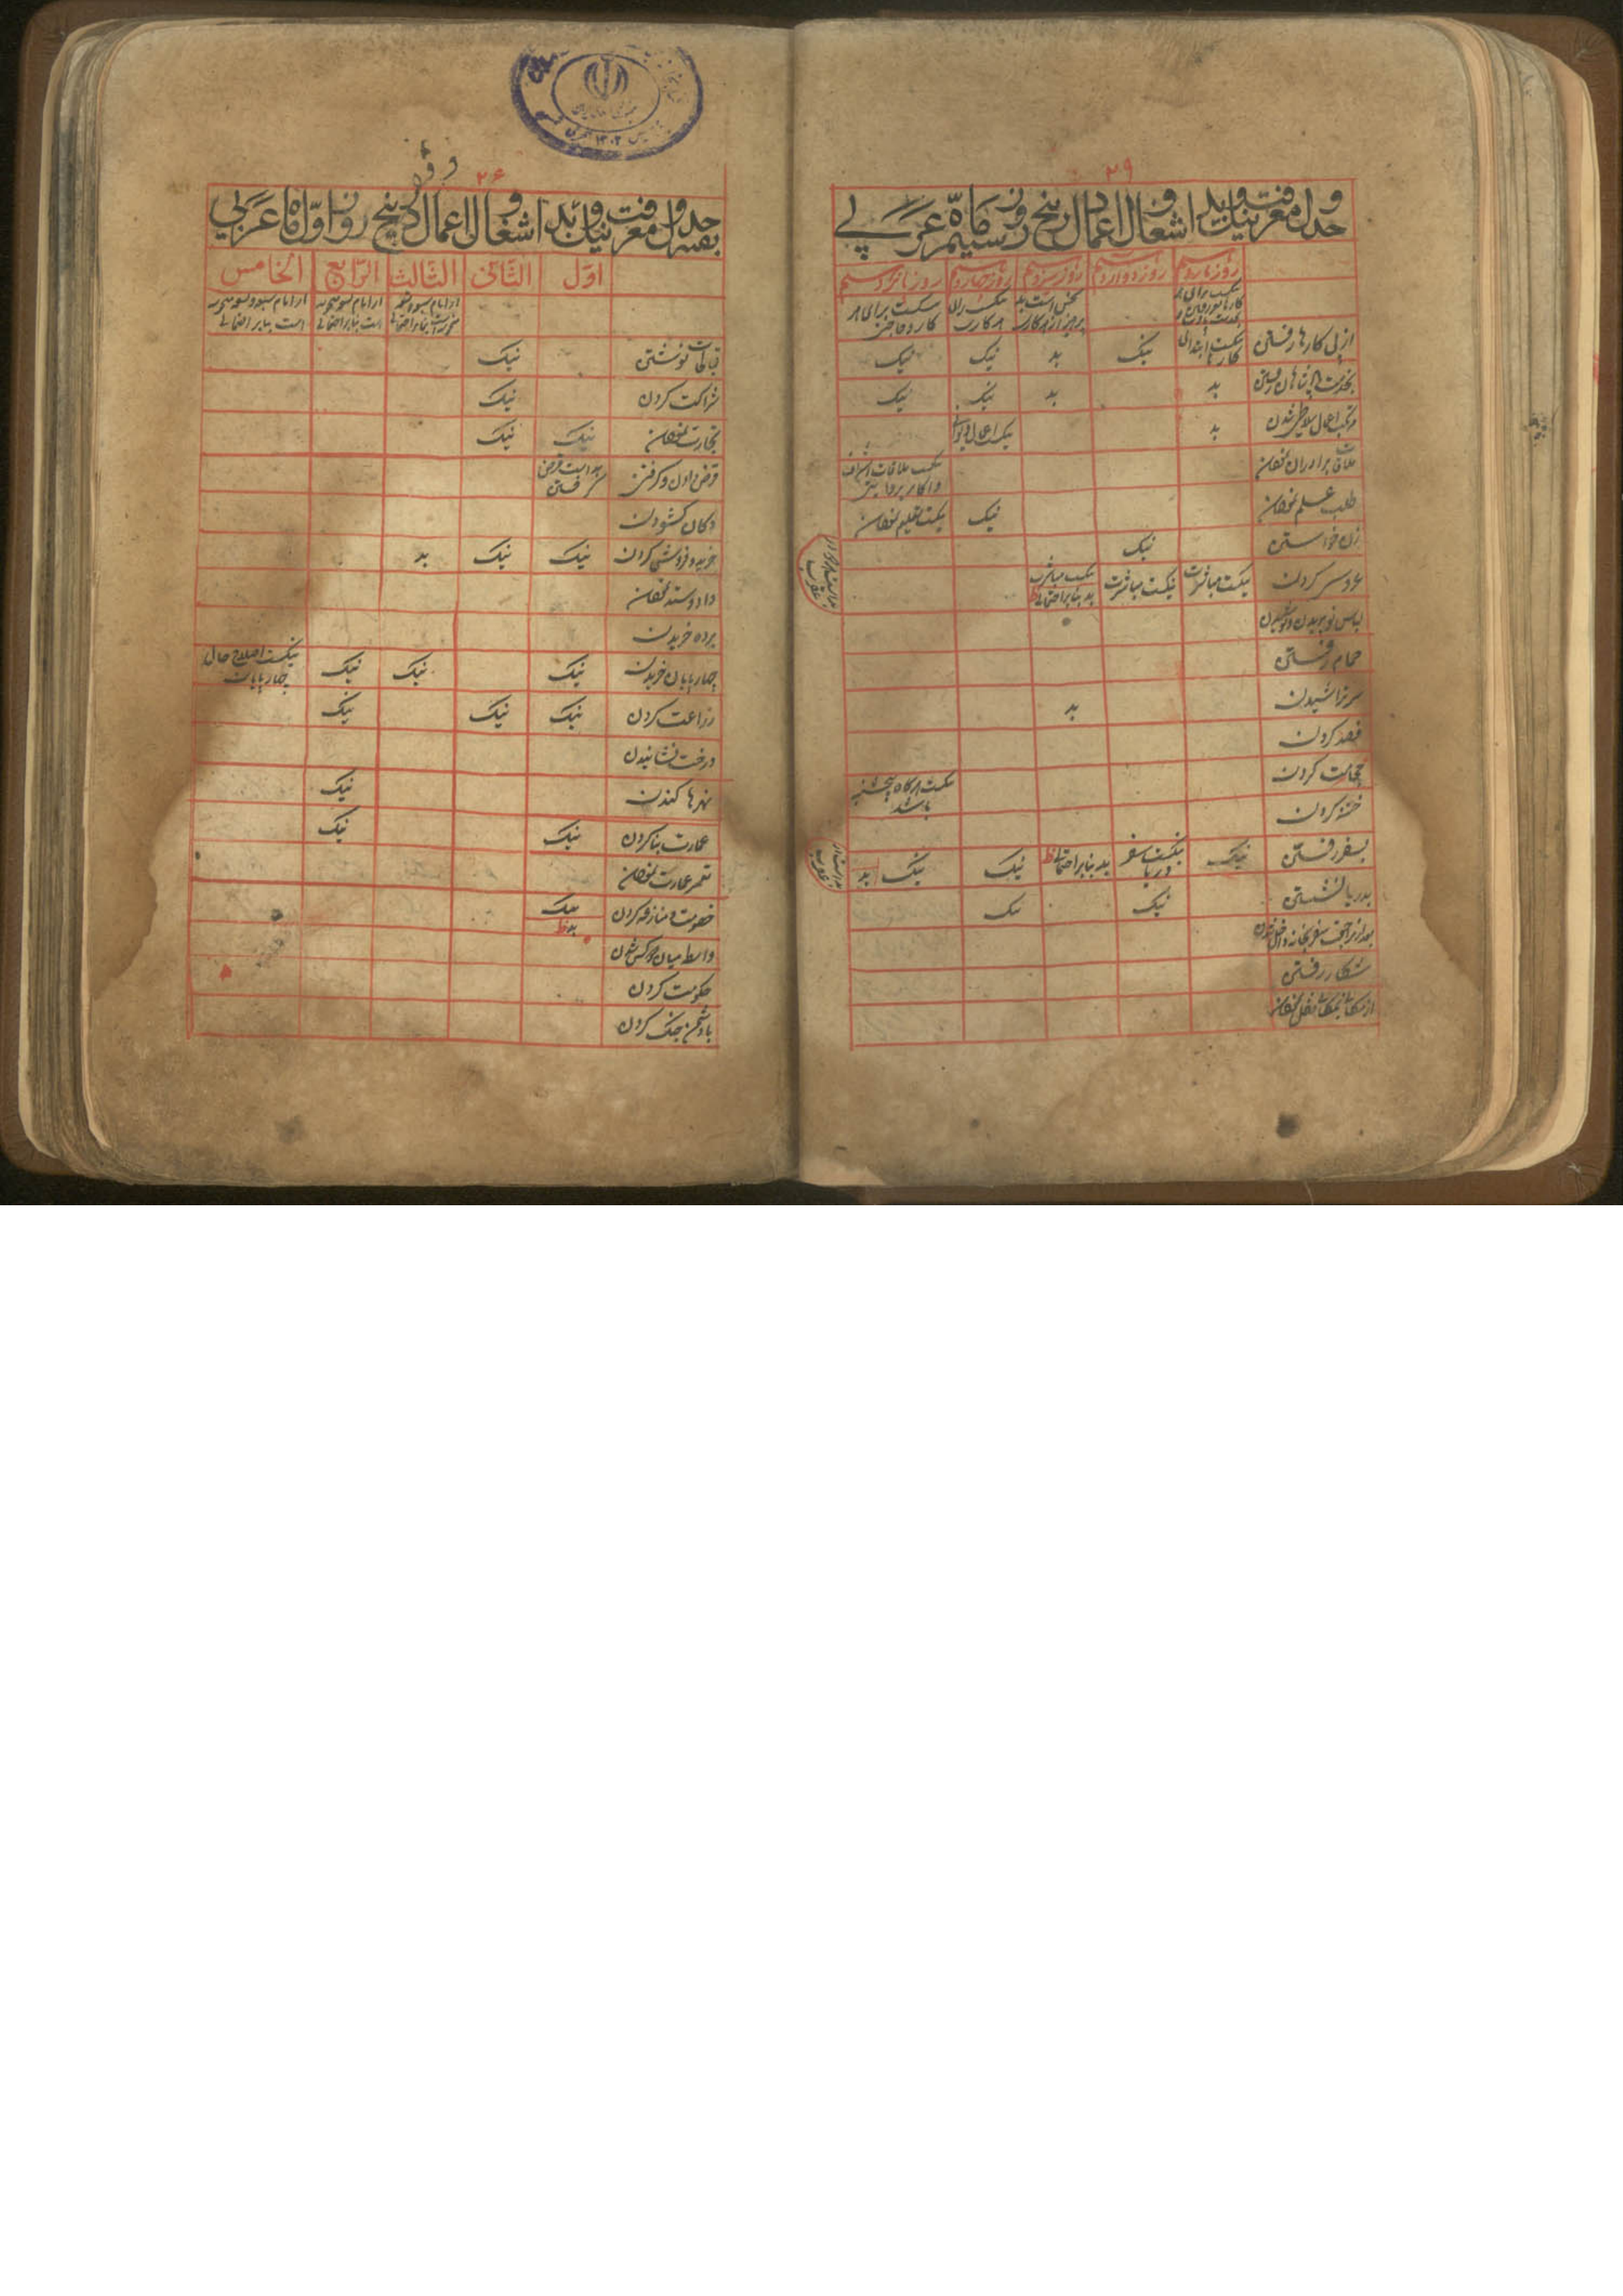 ۲۹
جدول معرفت نیک و بد اشغال و اعمال در پنج روز سیم ماه عربی
روز یازدهم روز دوازدهم روز سیزدهم روز چهاردهم روز پانزدهم
نحس است بد نیکست برای نیکست برای هر
پرهیز از هر کار هر کار کار و حاجت
از پی کارها رفتن نیکست ابتدای کارها نیک بد نیک نیک
بخدمت پادشاهان رفتن بد بد نیک نیک
مرتکب اعمال سلاطین شدن بد نیکست اعمال دیوانی
ملاقات برادران نمودن نیکست ملاقات اشراف و اکابر
طلب علم نمودن نیک نیکست تعلیم نمودن
زن خواستن نیک
عروسی کردن نیکست مباشرت نیکست مباشرت نیکست مباشرت
بد بنابر احتمالی
لباس نو بریدن و پوشیدن
حمام رفتن
سر تراشیدن بد
فصد کردن
حجامت کردن نیکست هرگاه پنجشنبه باشد
ختنه کردن
بسفر رفتن نیک نیکست سفر دریا بد بنابر احتمالی نیک نیک بد
بدریا نشستن نیک نیک
بعد از مراجعت سفر بخانه داخل شدن
شکار رفتن
از مکانی بمکانی نقل نمودن
۲۶
بقیه جدول معرفت نیک و بد اشغال و اعمال در پنج روز اول ماه عربی
اول الثانی الثالث الرابع الخامس
است بنابر احتمالی است بنابر احتمالی
قبالجات نوشتن نیک
شراکت کردن نیک
تجارت نمودن نیک نیک
قرض دادن و گرفتن بد است قرض گرفتن
دکان گشودن
خرید و فروش کردن نیک نیک بد
داد و ستد نمودن
برده خریدن
چهارپایان خریدن نیک نیک نیک نیکست اصلاح حال چهارپایان
زراعت کردن نیک نیک نیک
درخت نشانیدن
نهرها کندن نیک
عمارت بنا کردن نیک نیک
تعمیر عمارت نمودن
خصومت و منازعه کردن نیک بد
واسطه میان دو کس شدن
حکومت کردن
با دشمن جنگ کردن